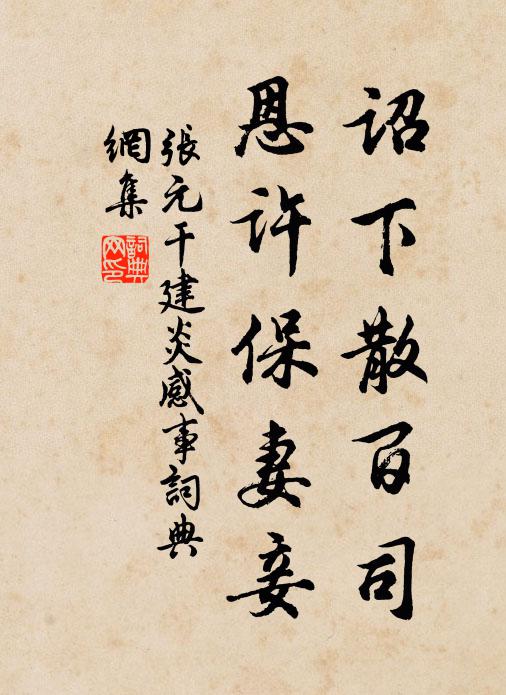 詔下散百司
恩許保妻妾
張元干建炎感事詞典
網集
詞典
网印